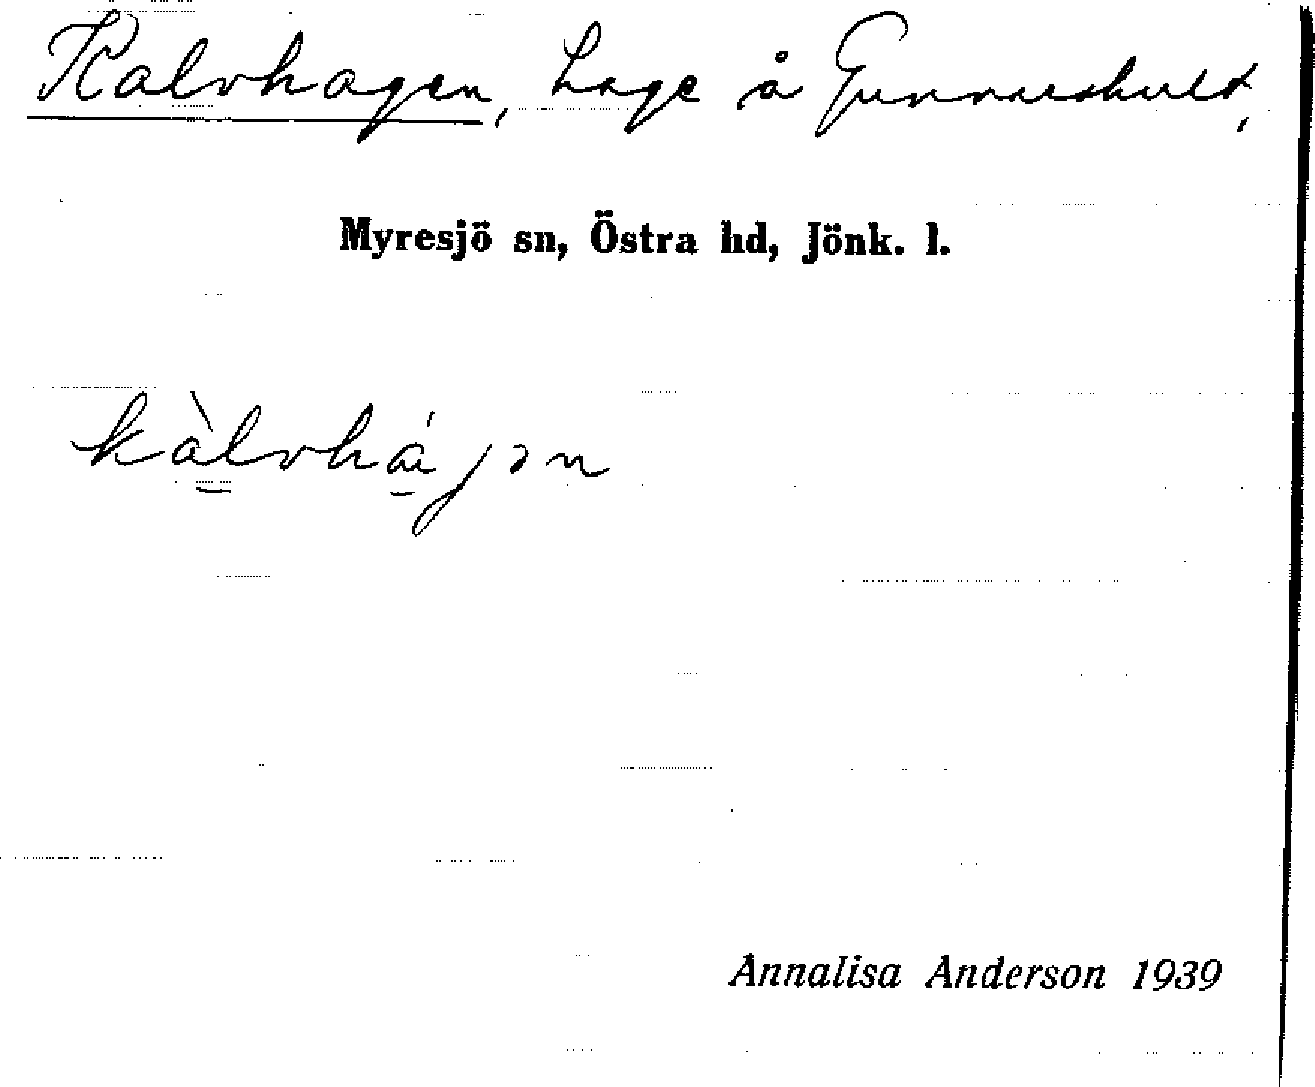 Kalvhagen, hage å Gunnarshult,
Myresjö sn, Östra hd, Jönk. l.
kàlvháɡən
Annalisa Anderson 1939